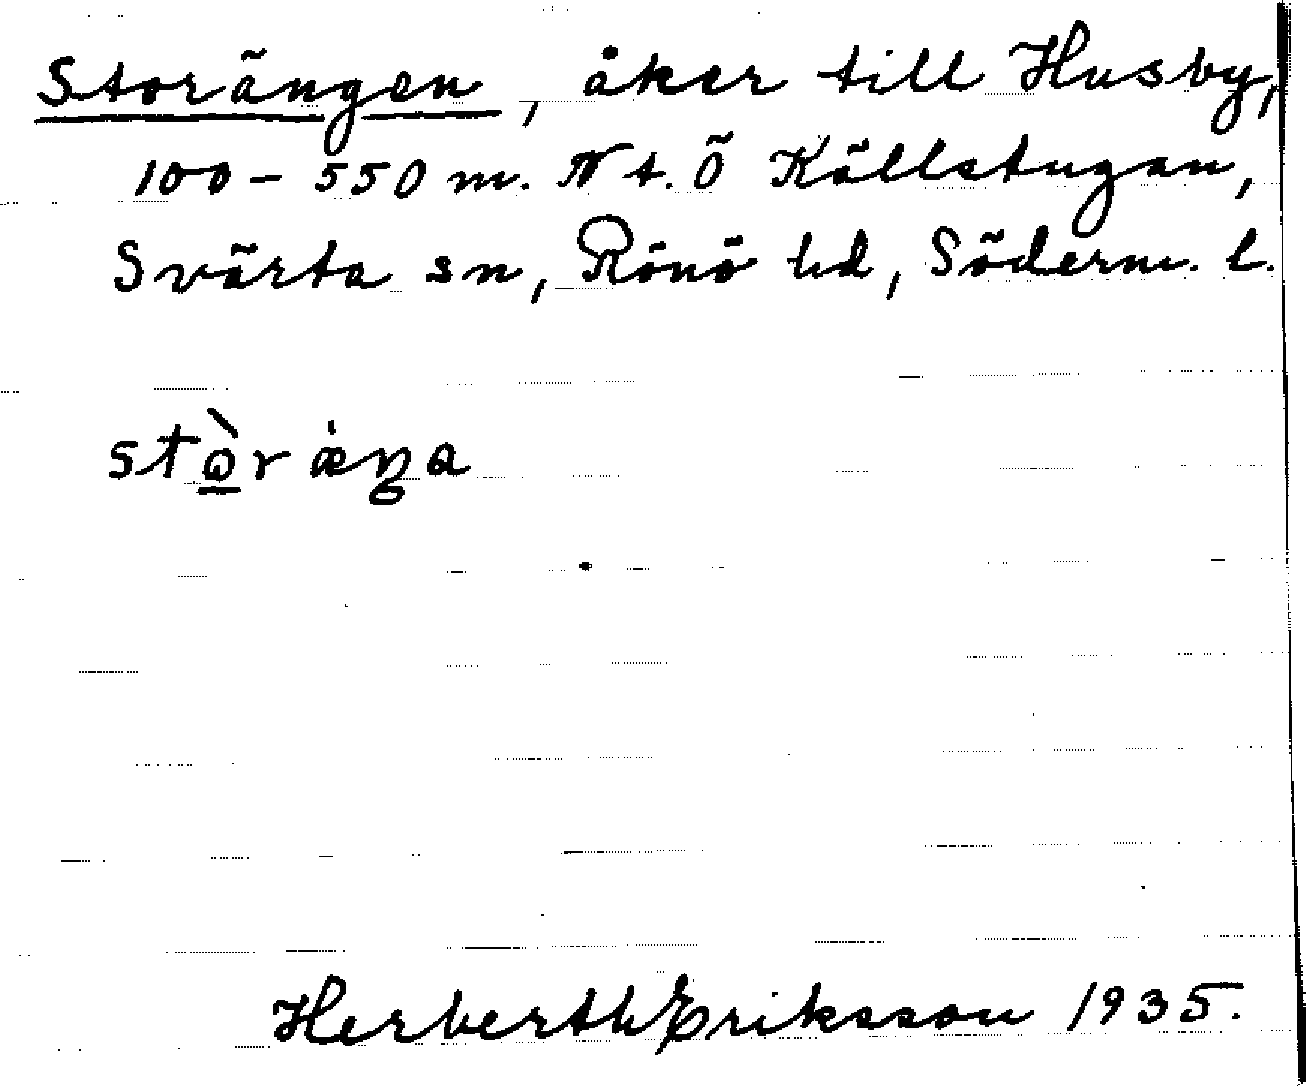 Storängen, åker till Husby,
100-550 m. N t. Ö Källstugan,
Svärta sn, Rönö hd, Söderm. l.
stò̱r ǽŋa
Herberth Eriksson 1935.